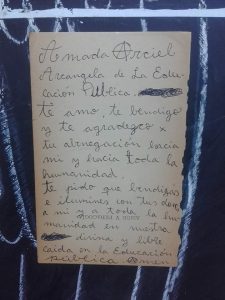 Amada Arciel
Arcangela de La Edu-
cación Pública.
te amo, te bendigo
y te agradezco x
tu abnegación hacia
mi y hacia toda la
humanidad.
te pido que bendigas
e ilumines con tus
a mi y a toda la hu-
manidad en nuestra
divina y libre
caida en la Educación
pública. Amen